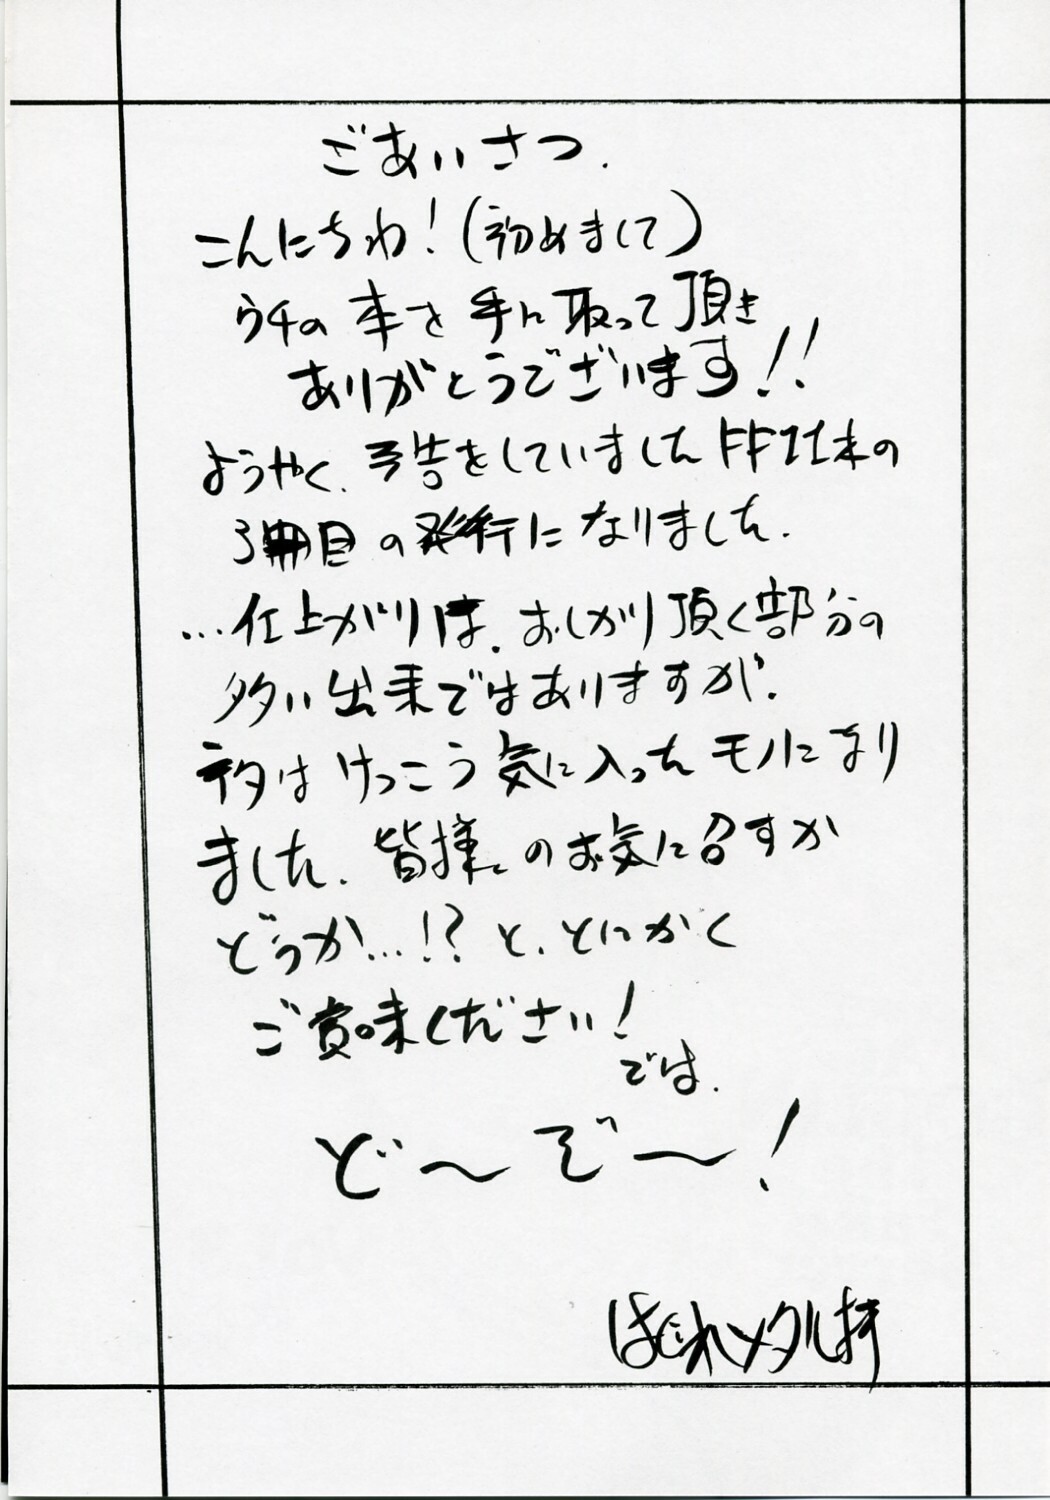 ごあいさつ.
こんにちわ!(初めまして)
ウチの本を手に取って頂き
ありがとうございます!!
ようやく、予告をしていましたFFXI本の
3冊目の発行になりました.
…仕上がりは、おしかり頂く部分の
多い出来ではありますが、
ネタはけっこう気に入ったモノになり
ました、皆様のお気に召すか
どうか…!?と、とにかく
ご賞味ください!
では、
ど〜ぞ〜!
はじれメタル